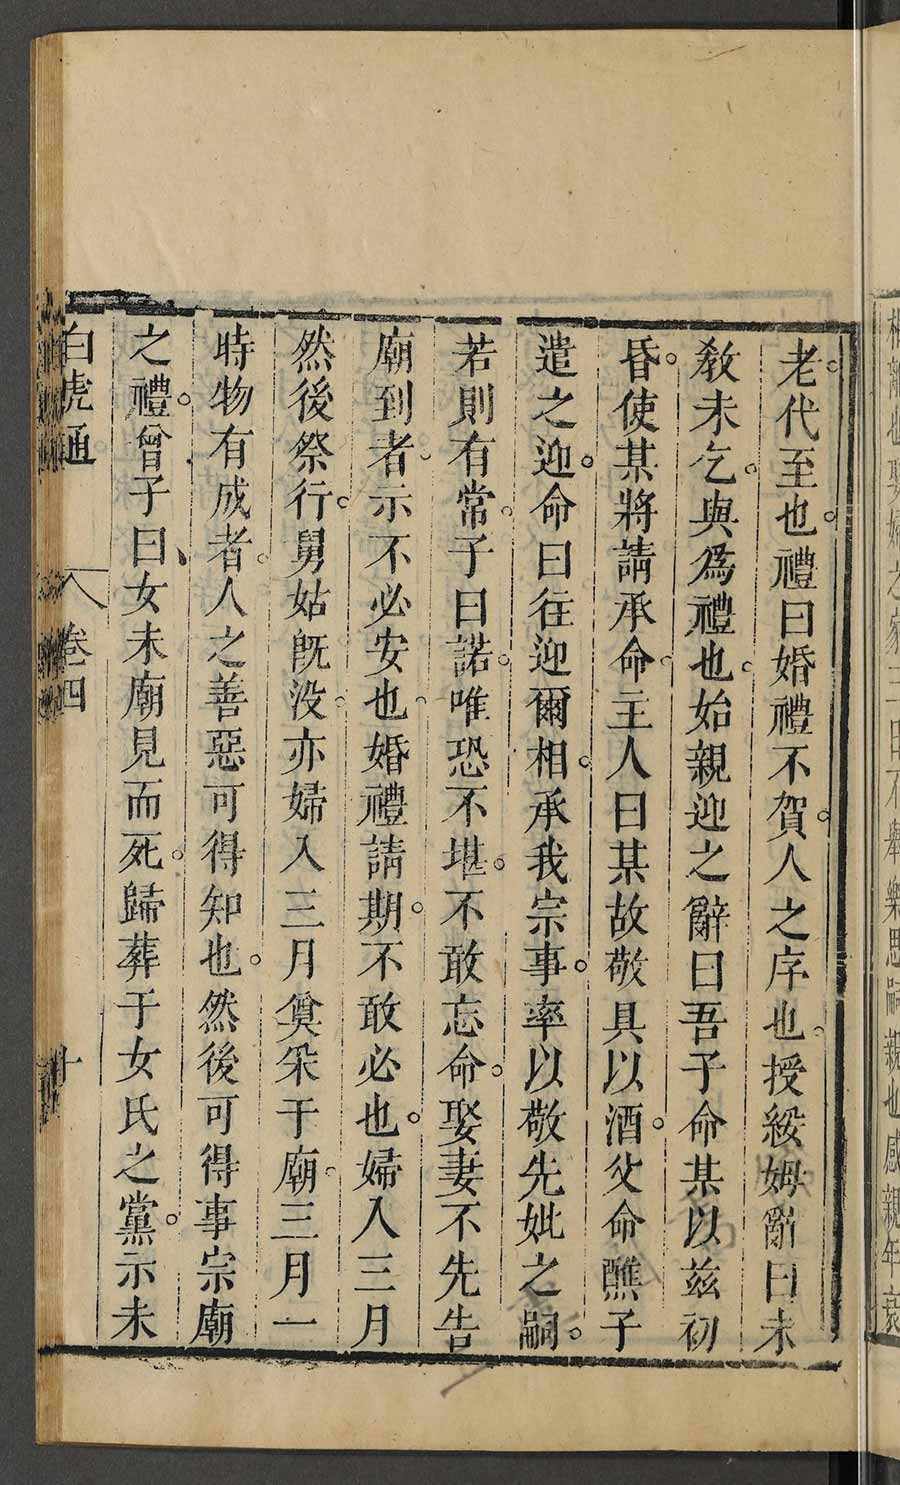 相離也娶婦之家三日不舉樂思嗣親也感親年衰
老代至也禮曰婚禮不賀人之序也授綏姆辭曰未
教未乞與為禮也始親迎之辭曰吾子命某以茲初
昏使某將請承命主人曰某故敬具以酒父命醮子
遣之迎命曰往迎爾相承我宗事率以敬先妣之嗣
若則有常子曰諾唯恐不堪不敢忘命娶妻不先告
廟到者示不必安也婚禮請期不敢必也婦入三月
然後祭行舅姑既没亦婦入三月奠采于廟三月一
時物有成者人之善惡可得知也然後可得事宗廟
之禮曾子曰女未廟見而死歸葬于女氏之黨示未
白虎通 卷四 十